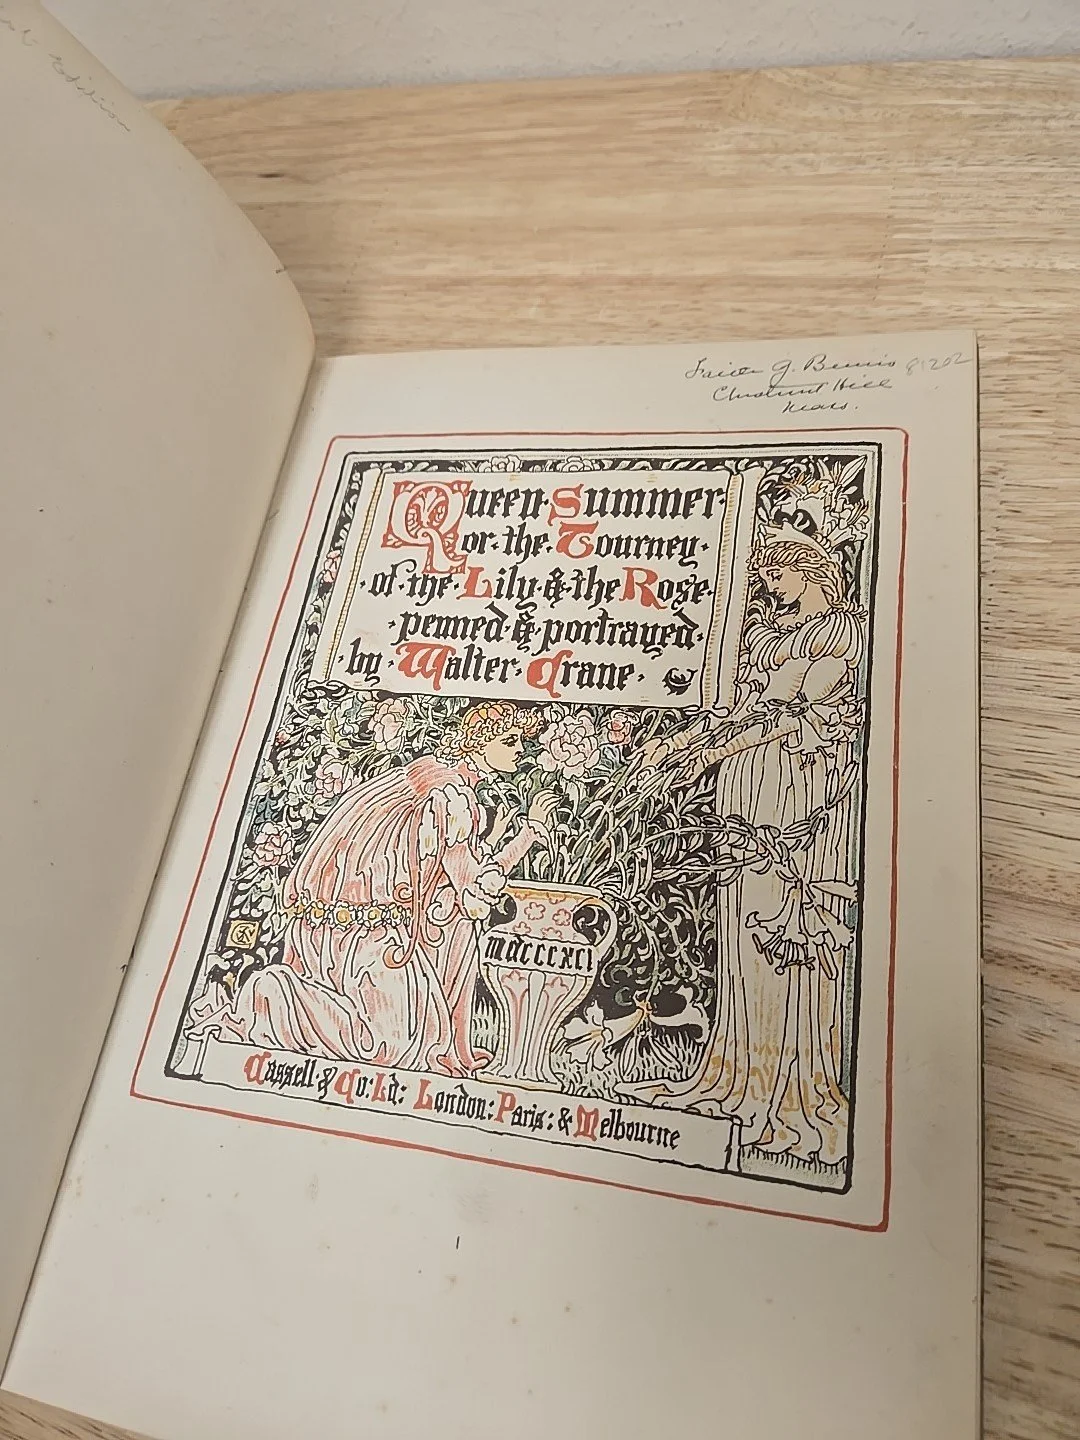 Edition
G. Bemis 81202
Chestnut Hill
Mass.
Queen · Summer ·
or · the · Tourney ·
· of · the · Lily · & · the · Rose ·
· penned · & · portrayed ·
· by · Walter · Crane ·
MDCCCXCI
Cassell · & Co: Ld: London: Paris: & Melbourne